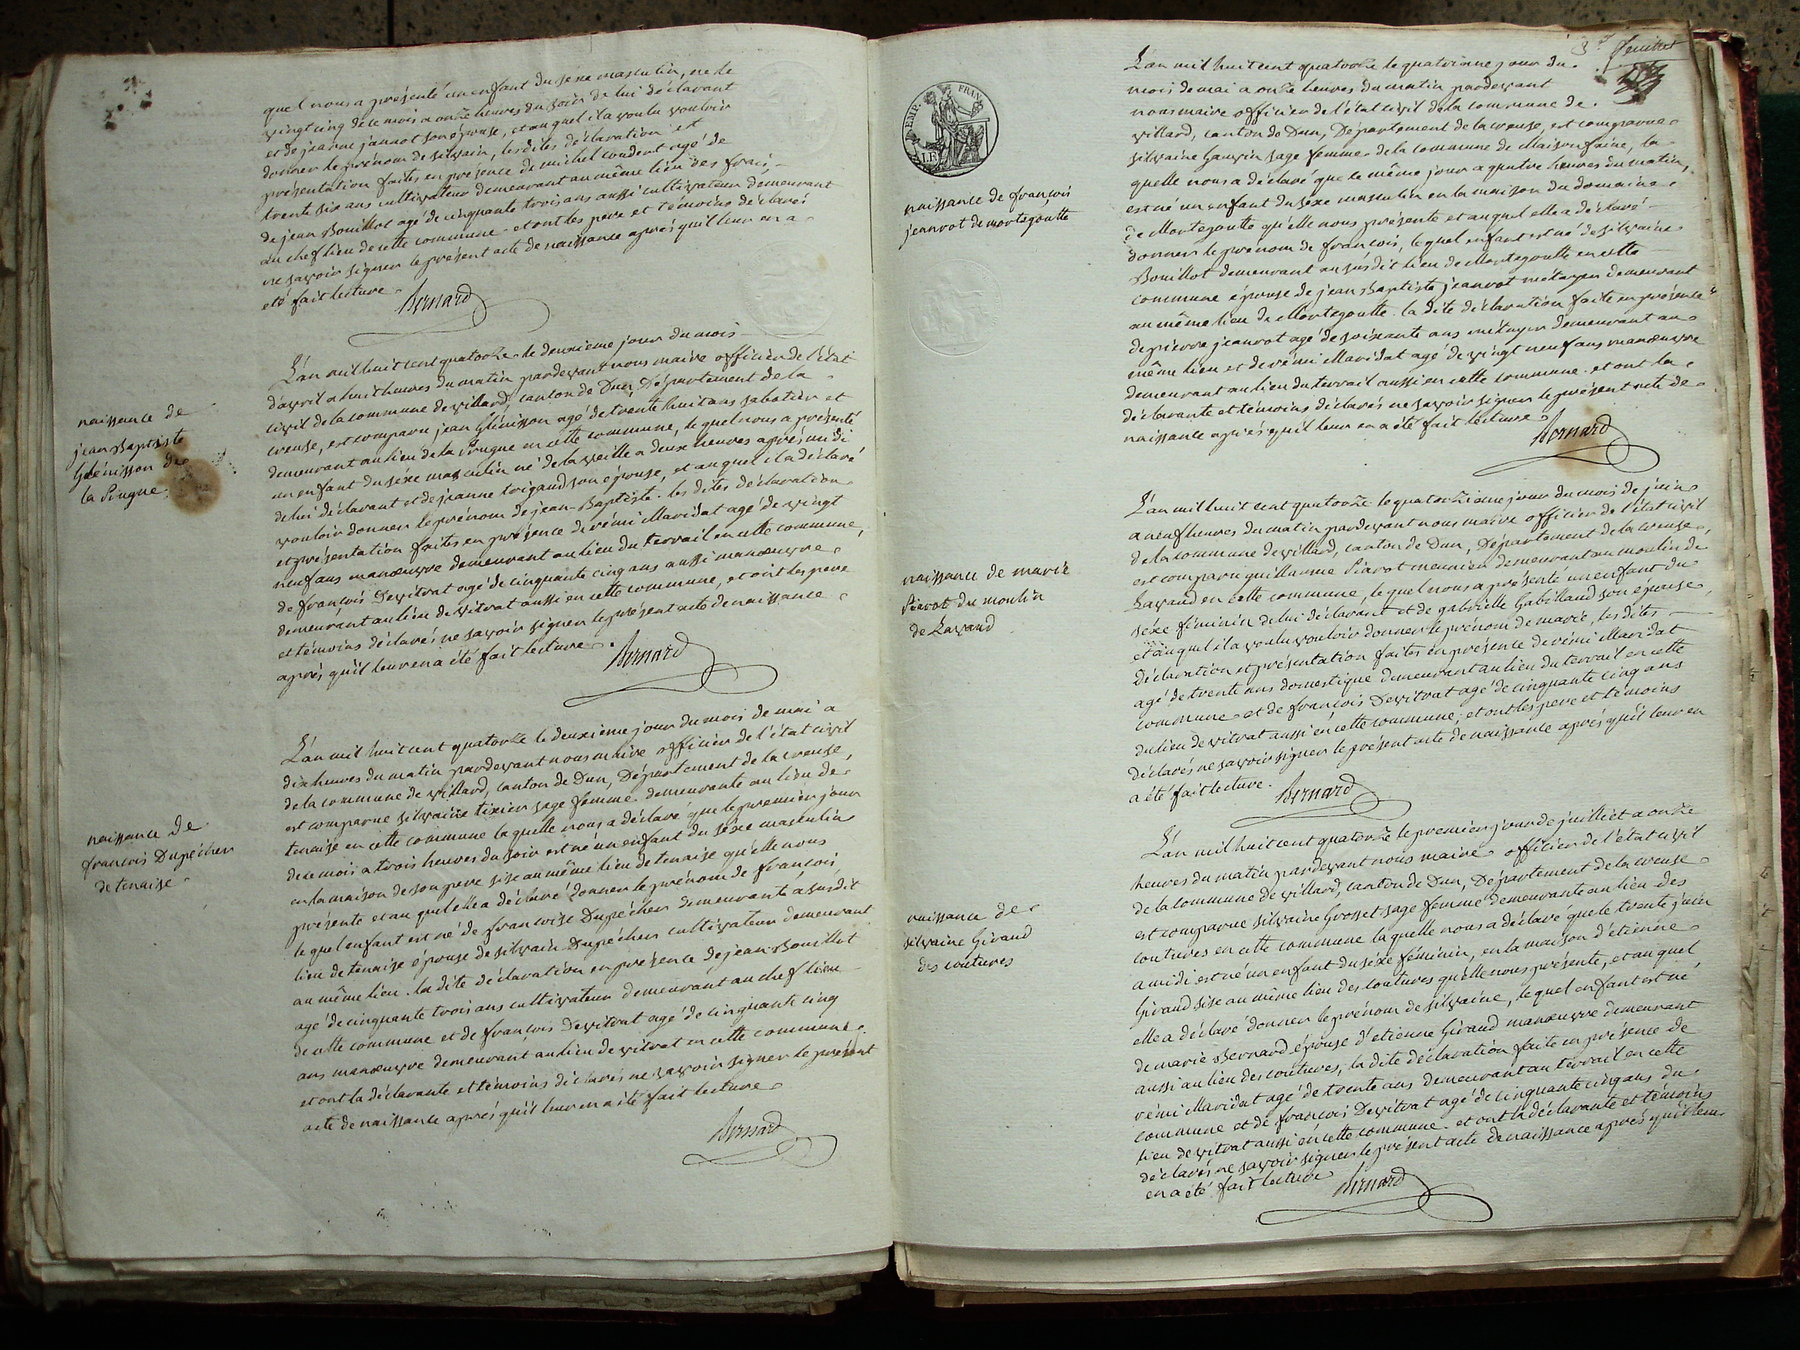 quel nous a présenté un enfant du séxe masculin, né le
vingt cinq de ce mois a onze heures du soir de lui déclarant
et de jeanne jannot son épouse, et au quel il a voulu vouloir
donner le prénom de silvain, les dites déclaration et
présentation faites en présence de michel coudert agé de
trente six ans cultivateur demeurant au même lien des
de jean Bouillot agé de cinquante trois ans aussi cultivateur demeurant
au chef lieu de cette commune. et ont les pere et témoins déclaré
ne savoir signer le présent acte de naissance aprés qu'il leur en a
été fait lecture.
Bernard
naissance de
jean Baptiste
Glénisson de
la Pingue.
L'an mil huit cent quatorze le deuxieme jour du mois
d'avril a huit heures du matin pardevant nous maire officier de l'état
civil de la commune de villard, canton de Dun, Département de la
creuse, est comparu jean Glénisson agé de trente huit ans sabotier et
demeurant au lieu de la Pingue en cette commune, le quel nous a présenté
un enfant du séxe masculin né de la veille a deux heures aprés midi
de lui déclarant et de jeanne trigaud son épouse, et au quel il a déclaré
vouloir donner le prénom de jean-Baptiste. les dites déclaration
et présentation faites en présence de rémi Maridat agé de vingt
neuf ans manoeuvre demeurant au lieu du terrail en cette commune,
de françois Devitrat agé de cinquante cinq ans aussi manoeuvre
demeurant au lieu de vitrat aussi en cette commune, et ont les pere
et témoins déclarés ne savoir signer le présent acte de naissance
aprés qu'il leur en a été fait lecture.
Bernard
naissance de
françois Dupécher
de tenaise
L'an mil huit cent quatorze le deuxieme jour du mois de mai a
dix heures du matin pardevant nous maire officier de l'état civil
de la commune de villard, canton de Dun, Département de la creuse,
est comparue silvaine tixier sage femme demeurante au lieu de
tenaise en cette commune la quelle nous a déclaré que le premier jour
de ce mois a trois heures du soir est né un enfant du séxe masculin
en la maison de son pere sise au même lieu de tenaise qu'elle nous
présente et au quel elle a déclaré donner le prénom de françois
le quel enfant est né de françoise Dupécher demeurante a susdit
lieu de tenaise épouse de silvain Dupécher cultivateur demeurant
au même lieu. la dite déclaration en présence de jean Bouillot
agé de cinquante trois ans cultivateur demeurant au chef lieu
de cette commune et de françois Devitrat agé de cinquante cinq
ans manoeuvre demeurant au lieu de vitrat en cette commune.
et ont la déclarante et témoins déclarés ne savoir signer le présent
acte de naissance aprés qu'il leur en a été fait lecture.
Bernard
3e feuillet
EMP. FRAN
naissance de françois
jeanrot de mortegoutte
L'an mil huit cent quatorze le quatrieme jour du
mois de mai a onze heures du matin pardevant
nous maire officier de l'état civil de la commune de
villard, canton de Dun, Département de la creuse, est comparue
silvaine sage femme de la commune de Maisonfaine, la
quelle nous a déclaré que le même jour a quatre heures du matin,
est né un enfant du séxe masculin en la maison du domaine
de Mortegoutte qu'elle nous présente et au quel elle a déclaré
donner le prénom de françois, le quel enfant est né de silvaine
Bouillot demeurant au susdit lieu de Mortegoutte en cette
commune épouse de jean Baptiste jeanrot métayer demeurant
au même lieu de Mortegoutte. la dite déclaration faite en présence
de pierre jeanrot agé de soixante ans métayer demeurant au
même lieu et de rémi Maridat agé de vingt neuf ans manoeuvre
demeurant au lieu du terrail aussi en cette commune. et ont la
déclarante et témoins déclarés ne savoir signer le présent acte de
naissance aprés qu'il leur en a été fait lecture.
Bernard
naissance de marie
Piarot du moulin
de Lavaud
L'an mil huit cent quatorze le quatorzieme jour du mois de juin
a neuf heures du matin pardevant nous maire officier de l'état civil
de la commune de villard, canton de Dun, Département de la creuse,
est comparu guillaume Piarot meunier demeurant au moulin de
Lavaud en cette commune, le quel nous a présenté un enfant du
séxe féminin de lui déclarant et de gabrielle Gabillaud son épouse,
et au quel il a voulu vouloir donner le prénom de marie, les dites
déclaration et présentation faites en présence de rémi Maridat
agé de trente ans domestique demeurant au lieu du terrail en cette
commune et de françois Devitrat agé de cinquante cinq ans
du lieu de vitrat aussi en cette commune, et ont les pere et témoins
déclarés ne savoir signer le présent acte de naissance aprés qu'il leur en
a été fait lecture.
Bernard
naissance de
silvaine Giraud
des coutures
L'an mil huit cent quatorze le premier jour de juillet a onze
heures du matin pardevant nous maire officier de l'état civil
de la commune de villard, canton de Dun, Département de la creuse
est comparue silvaine Grosset sage femme demeurante au lieu des
coutures en cette commune la quelle nous a déclaré que le trente juin
a midi est né un enfant du séxe féminin, en la maison d'etienne
Giraud sise au même lieu des coutures qu'elle nous présente, et au quel
elle a déclaré donner le prénom de silvaine, le quel enfant est né
de marie Bernard épouse d'etienne Giraud manoeuvre demeurant
aussi au lieu des coutures, la dite déclaration faite en présence de
rémi Maridat agé de trente ans demeurant au terrail en cette
commune et de françois Devitrat agé de cinquante cinq ans du
lieu de vitrat aussi en cette commune. et ont la déclarante et témoins
déclarés ne savoir signer le présent acte de naissance aprés qu'il leur
en a été fait lecture
Bernard